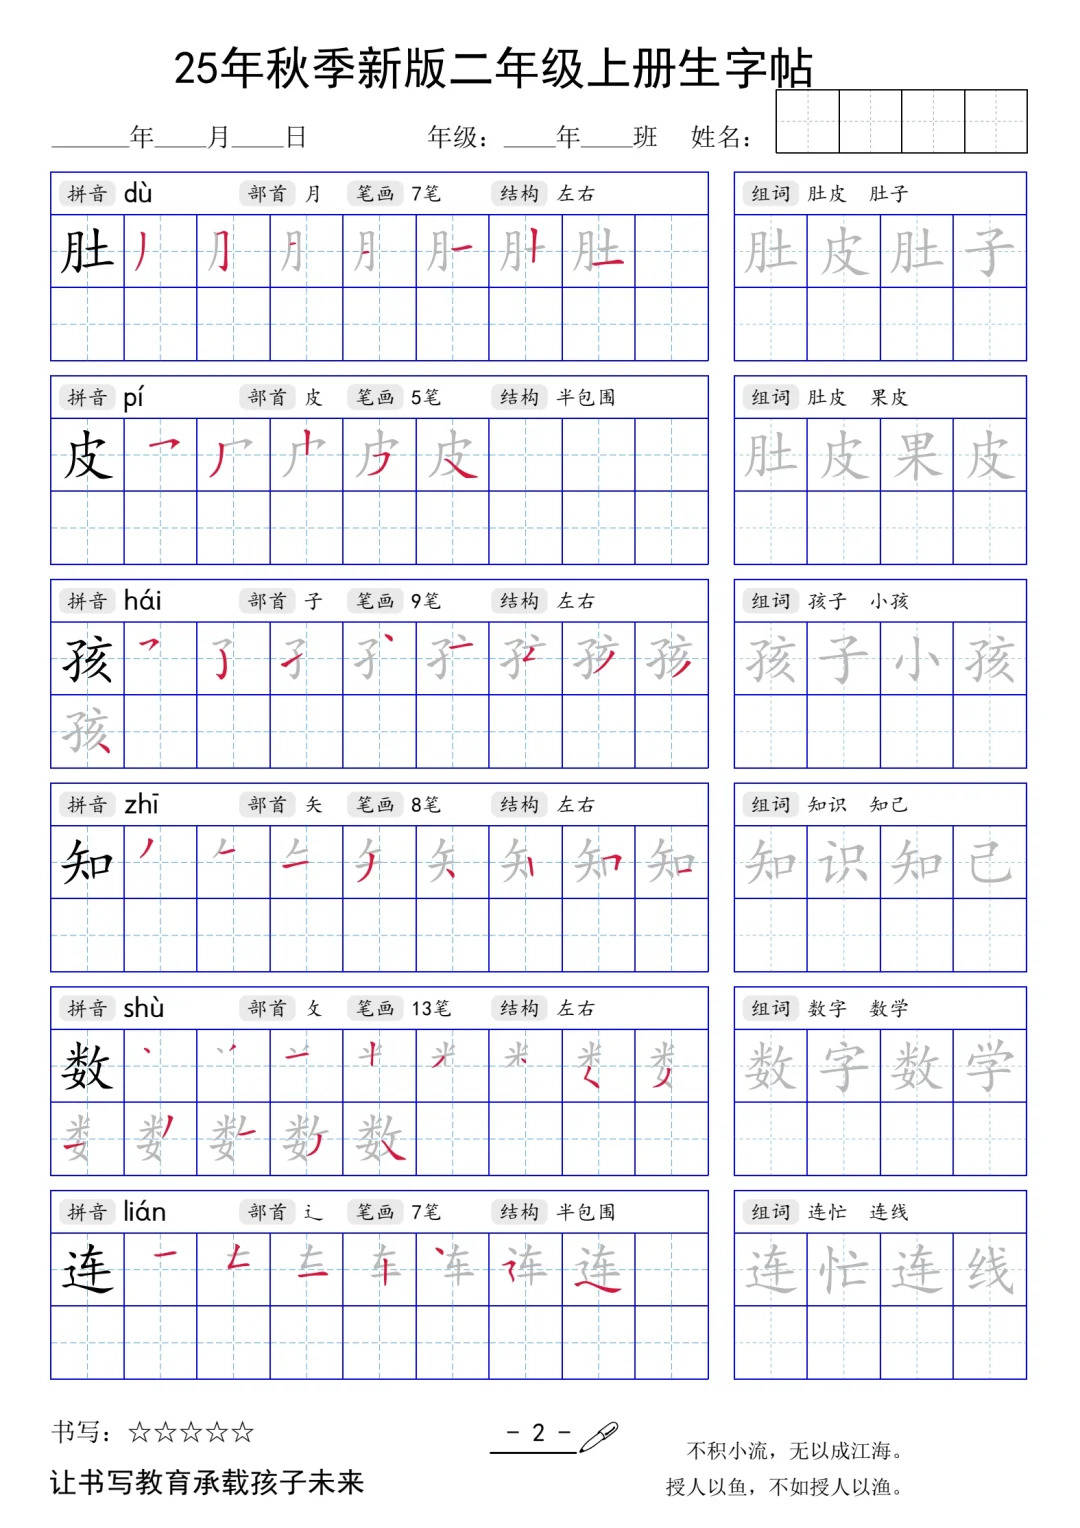 25年秋季新版二年级上册生字帖
______年____月____日 年级：____年____班 姓名：
拼音 dù 部首 月 笔画 7笔 结构 左右 组词 肚皮 肚子
肚 丿 ⺆ 月 月 肚 肚 肚 肚皮肚子
拼音 pí 部首 皮 笔画 5笔 结构 半包围 组词 肚皮 果皮
皮 皮 肚皮果皮
拼音 hái 部首 子 笔画 9笔 结构 左右 组词 孩子 小孩
孩 孩子小孩
孩
拼音 zhī 部首 矢 笔画 8笔 结构 左右 组词 知识 知己
知 知 知识知己
拼音 shù 部首 攵 笔画 13笔 结构 左右 组词 数字 数学
数 数字数学
数
拼音 lián 部首 辶 笔画 7笔 结构 半包围 组词 连忙 连线
连 连 连忙连线
书写：☆☆☆☆☆ - 2 - 不积小流，无以成江海。
让书写教育承载孩子未来 授人以鱼，不如授人以渔。